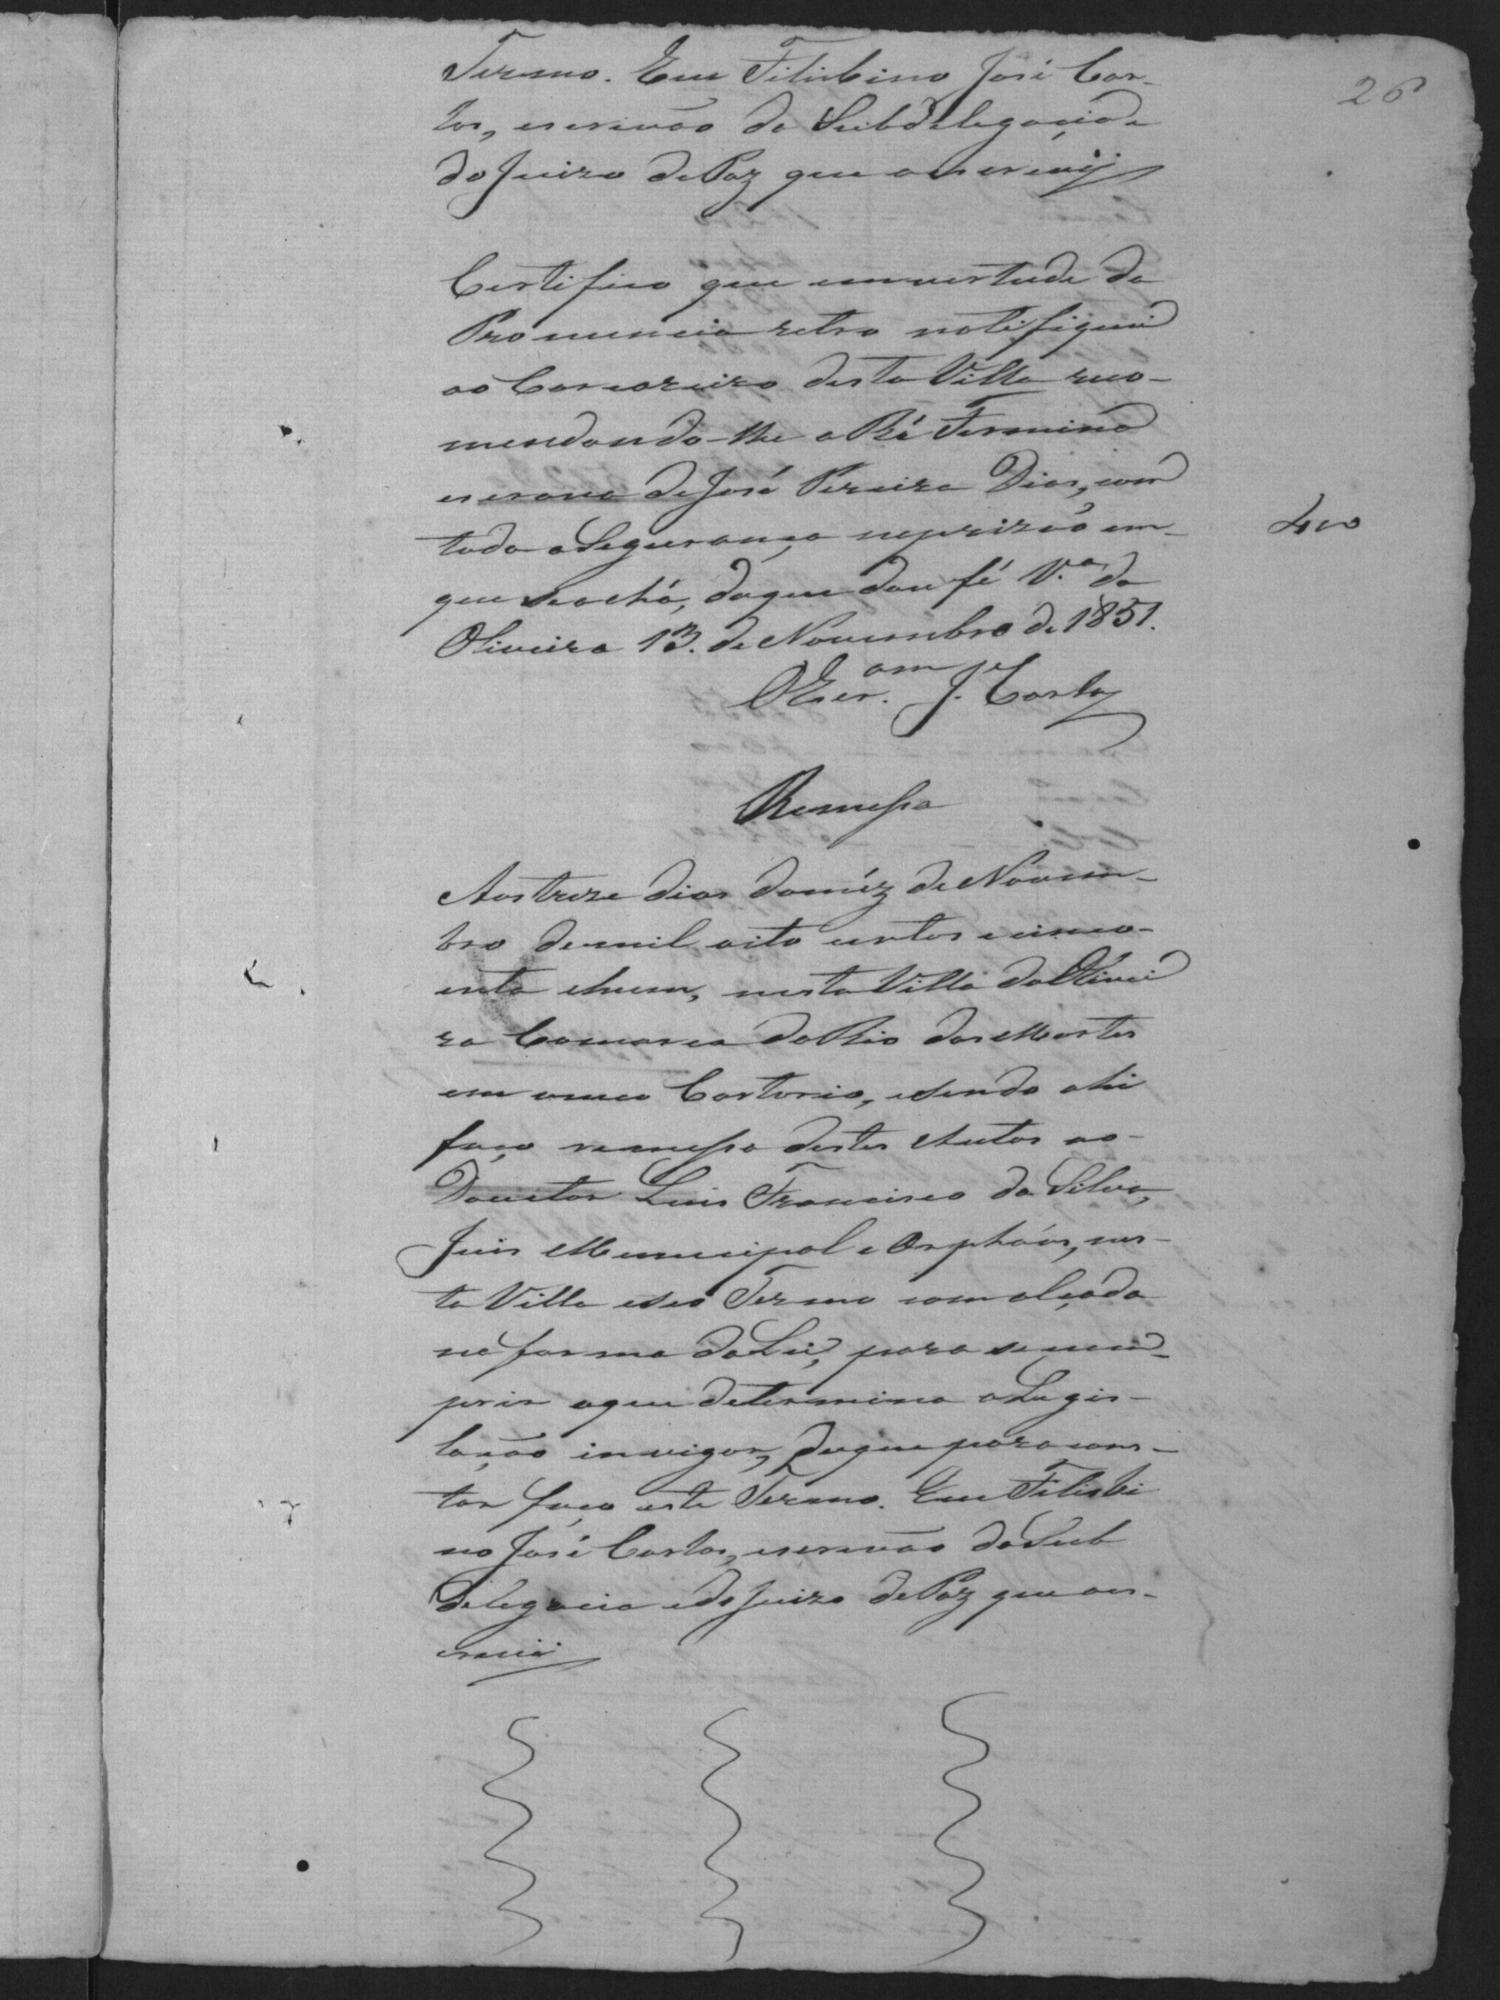 26
Termo. Eu Filisbino José Car-
los, escrivão da Subdelegacia e
do Juizo de Paz que o escrevij
Certifico que em vertude da
Pronuncia retro notifiquei
ao Carcereiro desta Villa reco-
mendando-lhe a Ré Fermina
escrava de José Pereira Dias, com
toda a Segurança na prizão em-
400
que se achá, do que dou fé V.a da
Oliveira 13. de Novembro de 1851.
O Escr.am J. Carlos
Remessa
Aos treze dias do méz de Novem-
bro de mil oito centos e cinco-
enta e hum, nesta Villa da Olivei
ra Comarca do Rio das Mortes
em o meu Cartorio, e sendo ahi
faço remessa destes Autos ao-
Douctor Luis Francisco da Silva,
Juis Municipal e Orphãos, nes-
ta Villa e seo Termo com alçada
na forma da Lei, para se cum-
prir o que determina a Legis-
lação in vigor, do que para cons-
tar faço este Termo. Eu Filisbi
no José Carlos, escrivão da Sub
delegacia e do Juizo de Paz que o es-
crevii